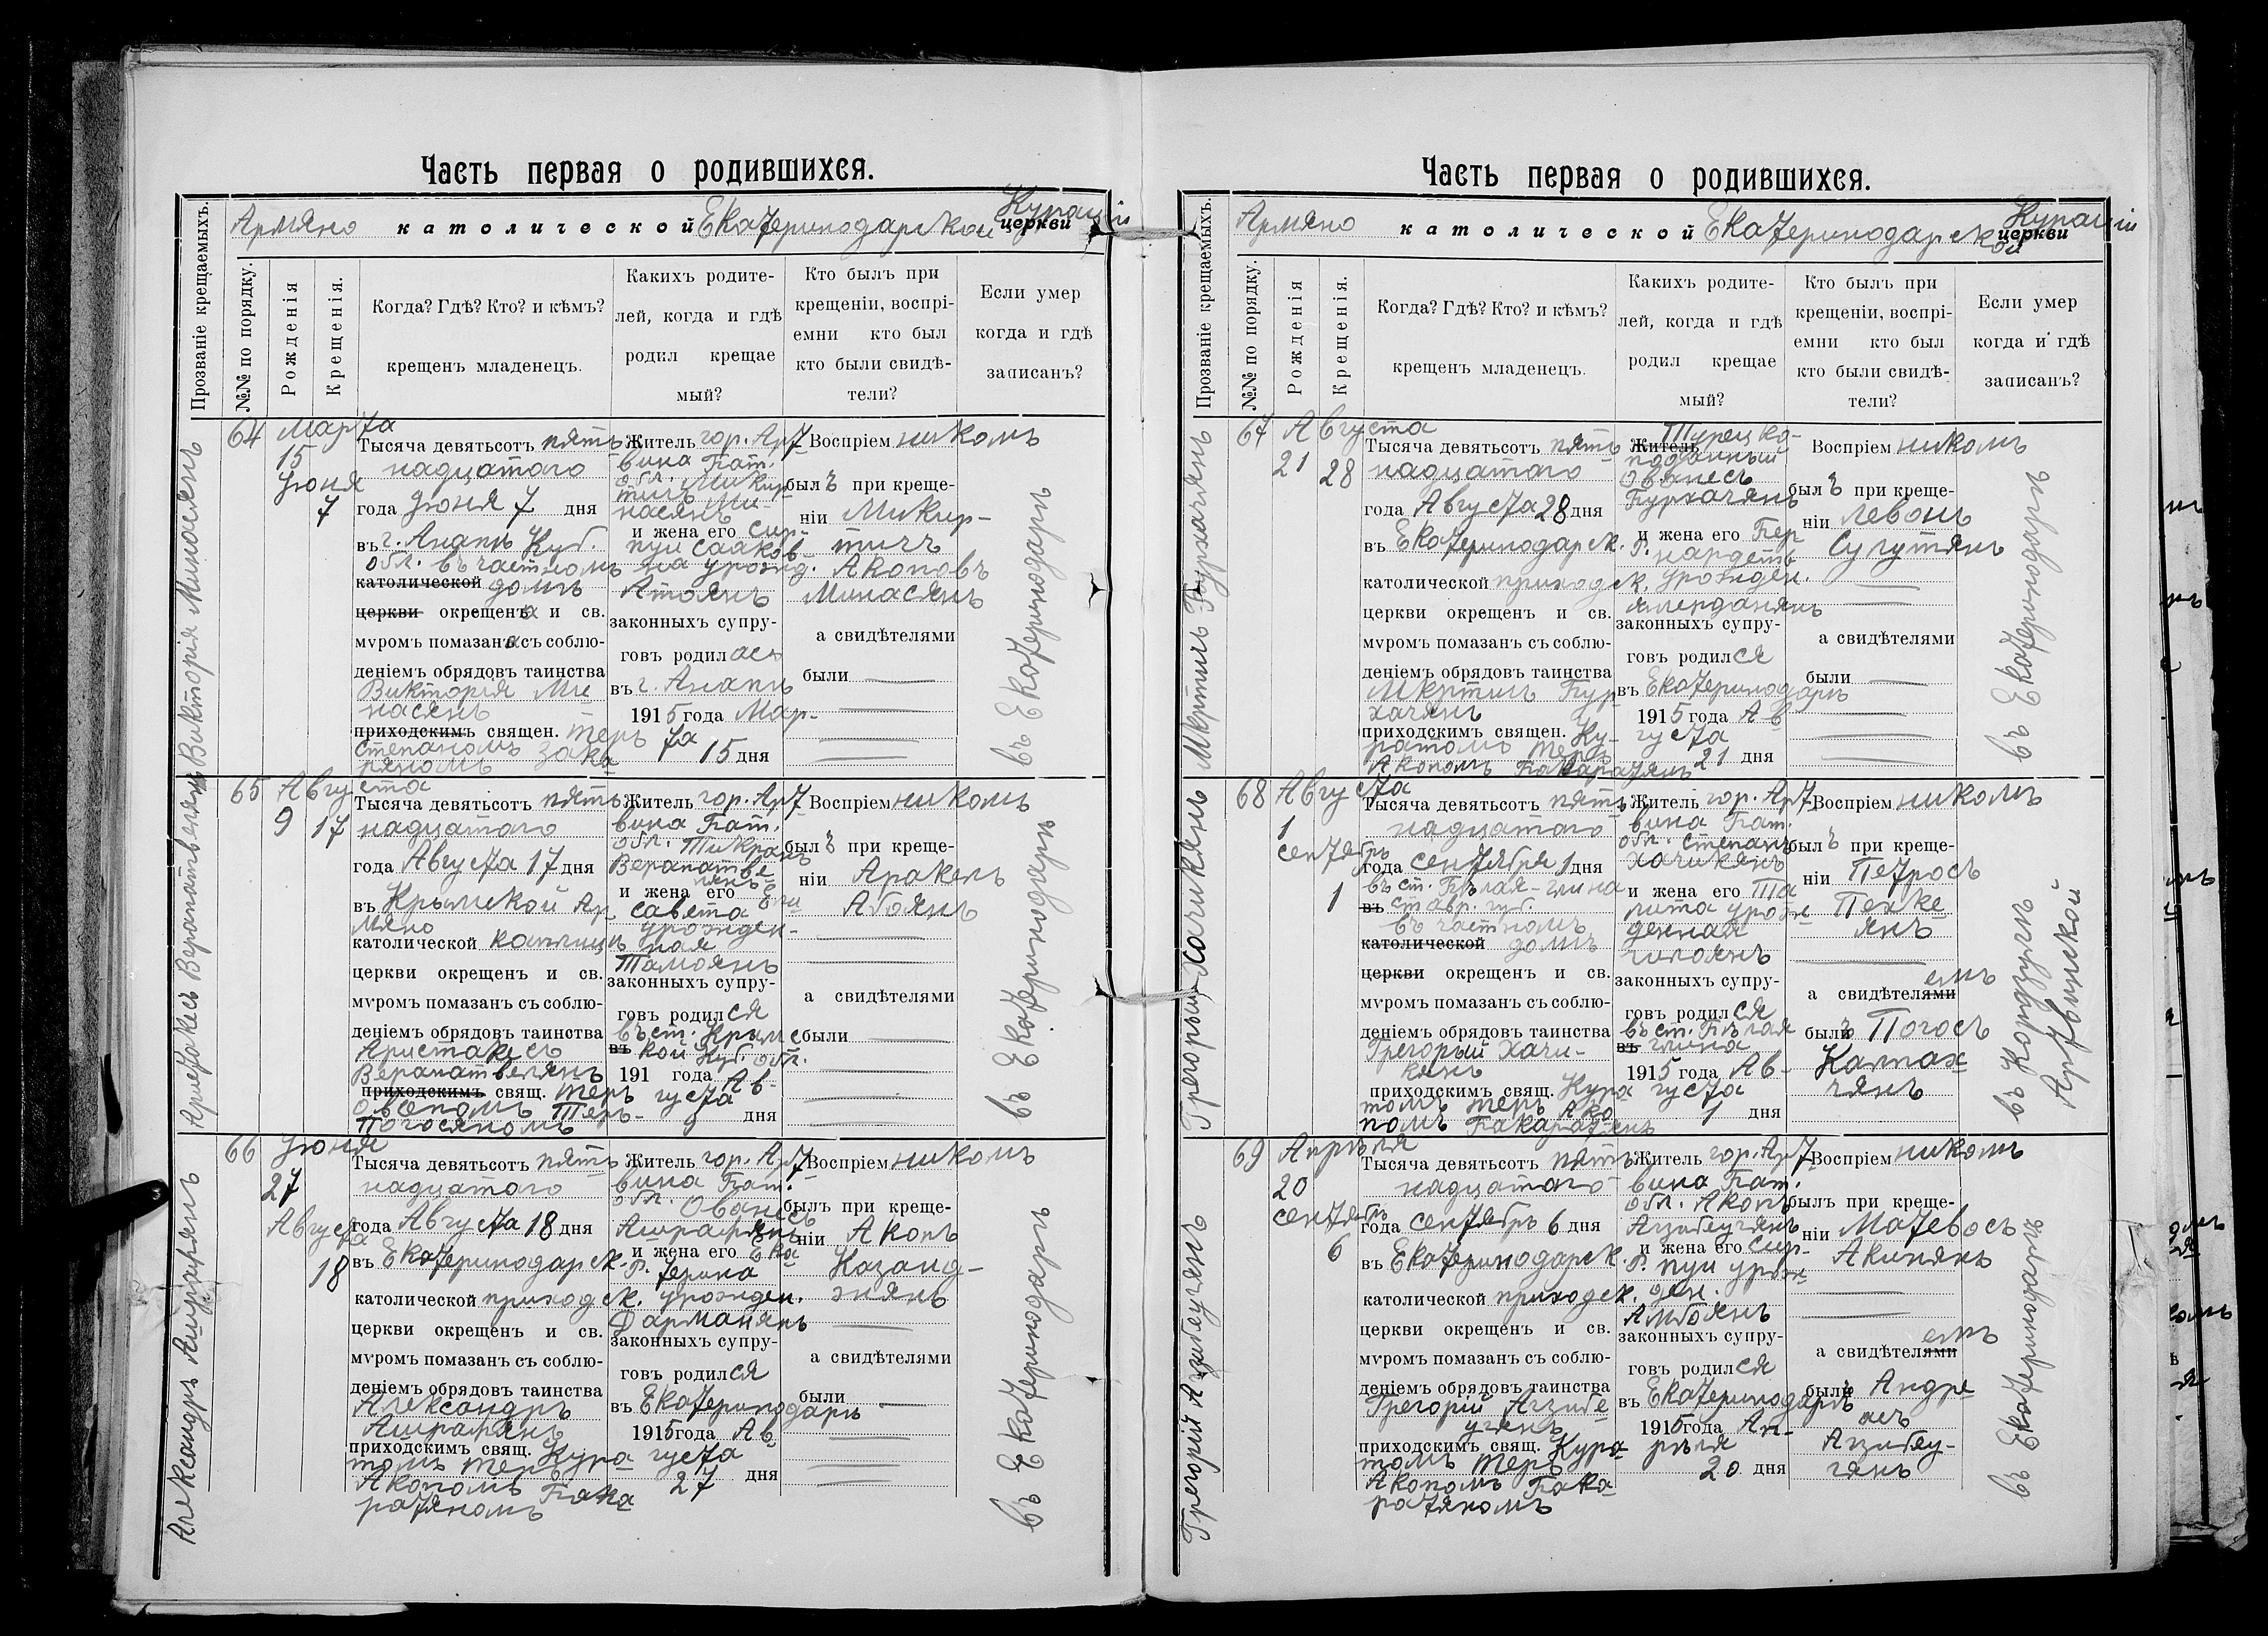 Часть первая о родившихся.
Армяно католической Екатеринодарской Курацiи церкви
Прозванiе крещаемыхъ.
№№ по порядку.
Рожденiя
Крещенiя.
Когда? Гдѣ? Кто? и кѣмъ?
крещенъ младенецъ.
Какихъ родите-
лей, когда и гдѣ
родил крещае
мый?
Кто былъ при
крещенiи, воспрi-
емни кто был
кто были свидѣ-
тели?
Если умер
когда и гдѣ
записанъ?
Викторiя Минасянъ
64
Марта
15
Iюня
7
Тысяча девятьсотъ пять
надцатого
года Iюня 7 дня
въ г. Анапѣ Куб.
обл. въ частномъ
католической домѣ
церкви окрещена и св.
мѵромъ помазана съ соблю-
денiемъ обрядовъ таинства
Викторiя Ми
насянъ
приходскимъ священ. Теръ
Степаномъ Зака
ряномъ
Житель гор. Арт
вина Бат.
обл. Микир
тичъ Ми-
насянъ
и жена его Сир-
пуи Сааков-
на урожд.
Атоянъ
законныхъ супру-
говъ родилась
въ г. Анапѣ
1915 года Мар-
та
15 дня
Воспрiем никомъ
былъ при креще-
нiи Микир-
тичъ
Акоповъ
Минасянъ
а свидѣтелями
были
въ Екатеринодарѣ
Аристакесъ Верапатвелянъ
65
Августа
9
17
Тысяча девятьсотъ пять
надцатого
года Августа 17 дня
въ Крымской Ар
мяно
католической каплицѣ
церкви окрещенъ и св.
мѵромъ помазанъ съ соблю-
денiемъ обрядовъ таинства
Аристакесъ
Верапатвелянъ
приходскимъ свящ. Теръ
Овсепомъ Теръ-
Погосяномъ
Житель гор. Арт
вина Бат.
обл. Тикранъ
Верапатве
лянъ
и жена его Ели
савета
урожден-
ная
Тамоянъ
законныхъ супру-
говъ родился
въ ст. Крымс
въ кой Куб. обл.
191 года Ав-
густа
9 дня
Воспрiем никомъ
былъ при креще-
нiи Аракелъ
Абоянъ
а свидѣтелями
были
въ Екатеринодарѣ
Александръ Ашрафянъ
66
Iюня
27
Августа
18
Тысяча девятьсотъ пять
надцатого
года Августа 18 дня
въ Екатеринодарск. Р.
католической приходск.
церкви окрещенъ и св.
мѵромъ помазанъ съ соблю-
денiемъ обрядовъ таинства
Александръ
Ашрафянъ
приходскимъ свящ. Кура
томъ Теръ
Акопомъ Бака
ратяномъ
Житель гор. Арт
вина Бат.
обл. Ованесъ
Ашрафянъ
и жена его Ека
терина
урожден.
Фарманянъ
законныхъ супру-
говъ родился
въ Екатеринодарѣ
1915 года Ав
густа
27 дня
Воспрiем никомъ
былъ при креще-
нiи Акопъ
Казанд-
жянъ
а свидѣтелями
были
въ Екатеринодарѣ
Часть первая о родившихся.
Армяно католической Екатеринодарской Курацiи церкви
Прозванiе крещаемыхъ.
№№ по порядку.
Рожденiя
Крещенiя.
Когда? Гдѣ? Кто? и кѣмъ?
крещенъ младенецъ.
Какихъ родите-
лей, когда и гдѣ
родил крещае
мый?
Кто былъ при
крещенiи, воспрi-
емни кто был
кто были свидѣ-
тели?
Если умер
когда и гдѣ
записанъ?
Мкртичъ Бурхачянъ
67
Августа
21
28
Тысяча девятьсотъ пять
надцатого
года Августа 28 дня
въ Екатеринодарск. Р.
католической приходск.
церкви окрещенъ и св.
мѵромъ помазанъ съ соблю-
денiемъ обрядовъ таинства
Мкртичъ Бур
хачянъ
приходскимъ священ. Ку-
ратомъ Теръ
Акопомъ Бакаратянъ
Турецко-
Житель подданный
Ованесъ
Бурхачянъ
и жена его Бер
нардетъ
урожден.
законныхъ супру-
говъ родился
въ Екатеринодарѣ
1915 года Ав
густа
21 дня
Воспрiем никомъ
былъ при креще-
нiи Левонъ
Сугутянъ
а свидѣтелями
были
въ Екатеринодарѣ
Грегорый Хачикянъ
68
Августа
1
Сентябрь
1
Тысяча девятьсотъ пять
надцатого
года Сентября 1 дня
въ ст. Бѣлая-глина
въ ставр. губ.
въ частномъ
католической домѣ
церкви окрещенъ и св.
мѵромъ помазанъ съ соблю-
денiемъ обрядовъ таинства
Грегорый Хачи-
кянъ
приходскимъ свящ. Кура
томъ Теръ Ако
помъ Бакаратянъ
Житель гор. Арт
вина Бат.
обл. Степанъ
Хачикянъ
и жена его
урож
денная
законныхъ супру-
говъ родился
въ ст. Бѣлая
въ глина
1915 года Ав-
густа
1 дня
Воспрiем никомъ
былъ при креще-
нiи Петросъ
янъ
а свидѣтелями емъ
былъ Погосъ
Калтах-
чянъ
въ Кордзулѣ
Артвинской
Грегорiй Агзибеугянъ
69
Апрѣля
20
Сентябрь
6
Тысяча девятьсотъ пять
надцатого
года Сентябрь 6 дня
въ Екатеринодарск. Р.
католической приходск.
церкви окрещенъ и св.
мѵромъ помазанъ съ соблю-
денiемъ обрядовъ таинства
Грегорiй Агзибе
угянъ
приходскимъ свящ. Кура
томъ Теръ
Акопомъ Бака
ратяномъ
Житель гор. Арт
вина Бат.
обл. Акопъ
Агзибеугянъ
и жена его Сир-
пуи урож
ден.
Амбоянъ
законныхъ супру-
говъ родился
въ Екатеринодарѣ
1915 года Ап-
рѣля
20 дня
Воспрiем никомъ
былъ при креще-
нiи Матевосъ
Акипянъ
а свидѣтелями емъ
былъ Андре
асъ
Агзибеу-
гянъ
въ Екатеринодарѣ